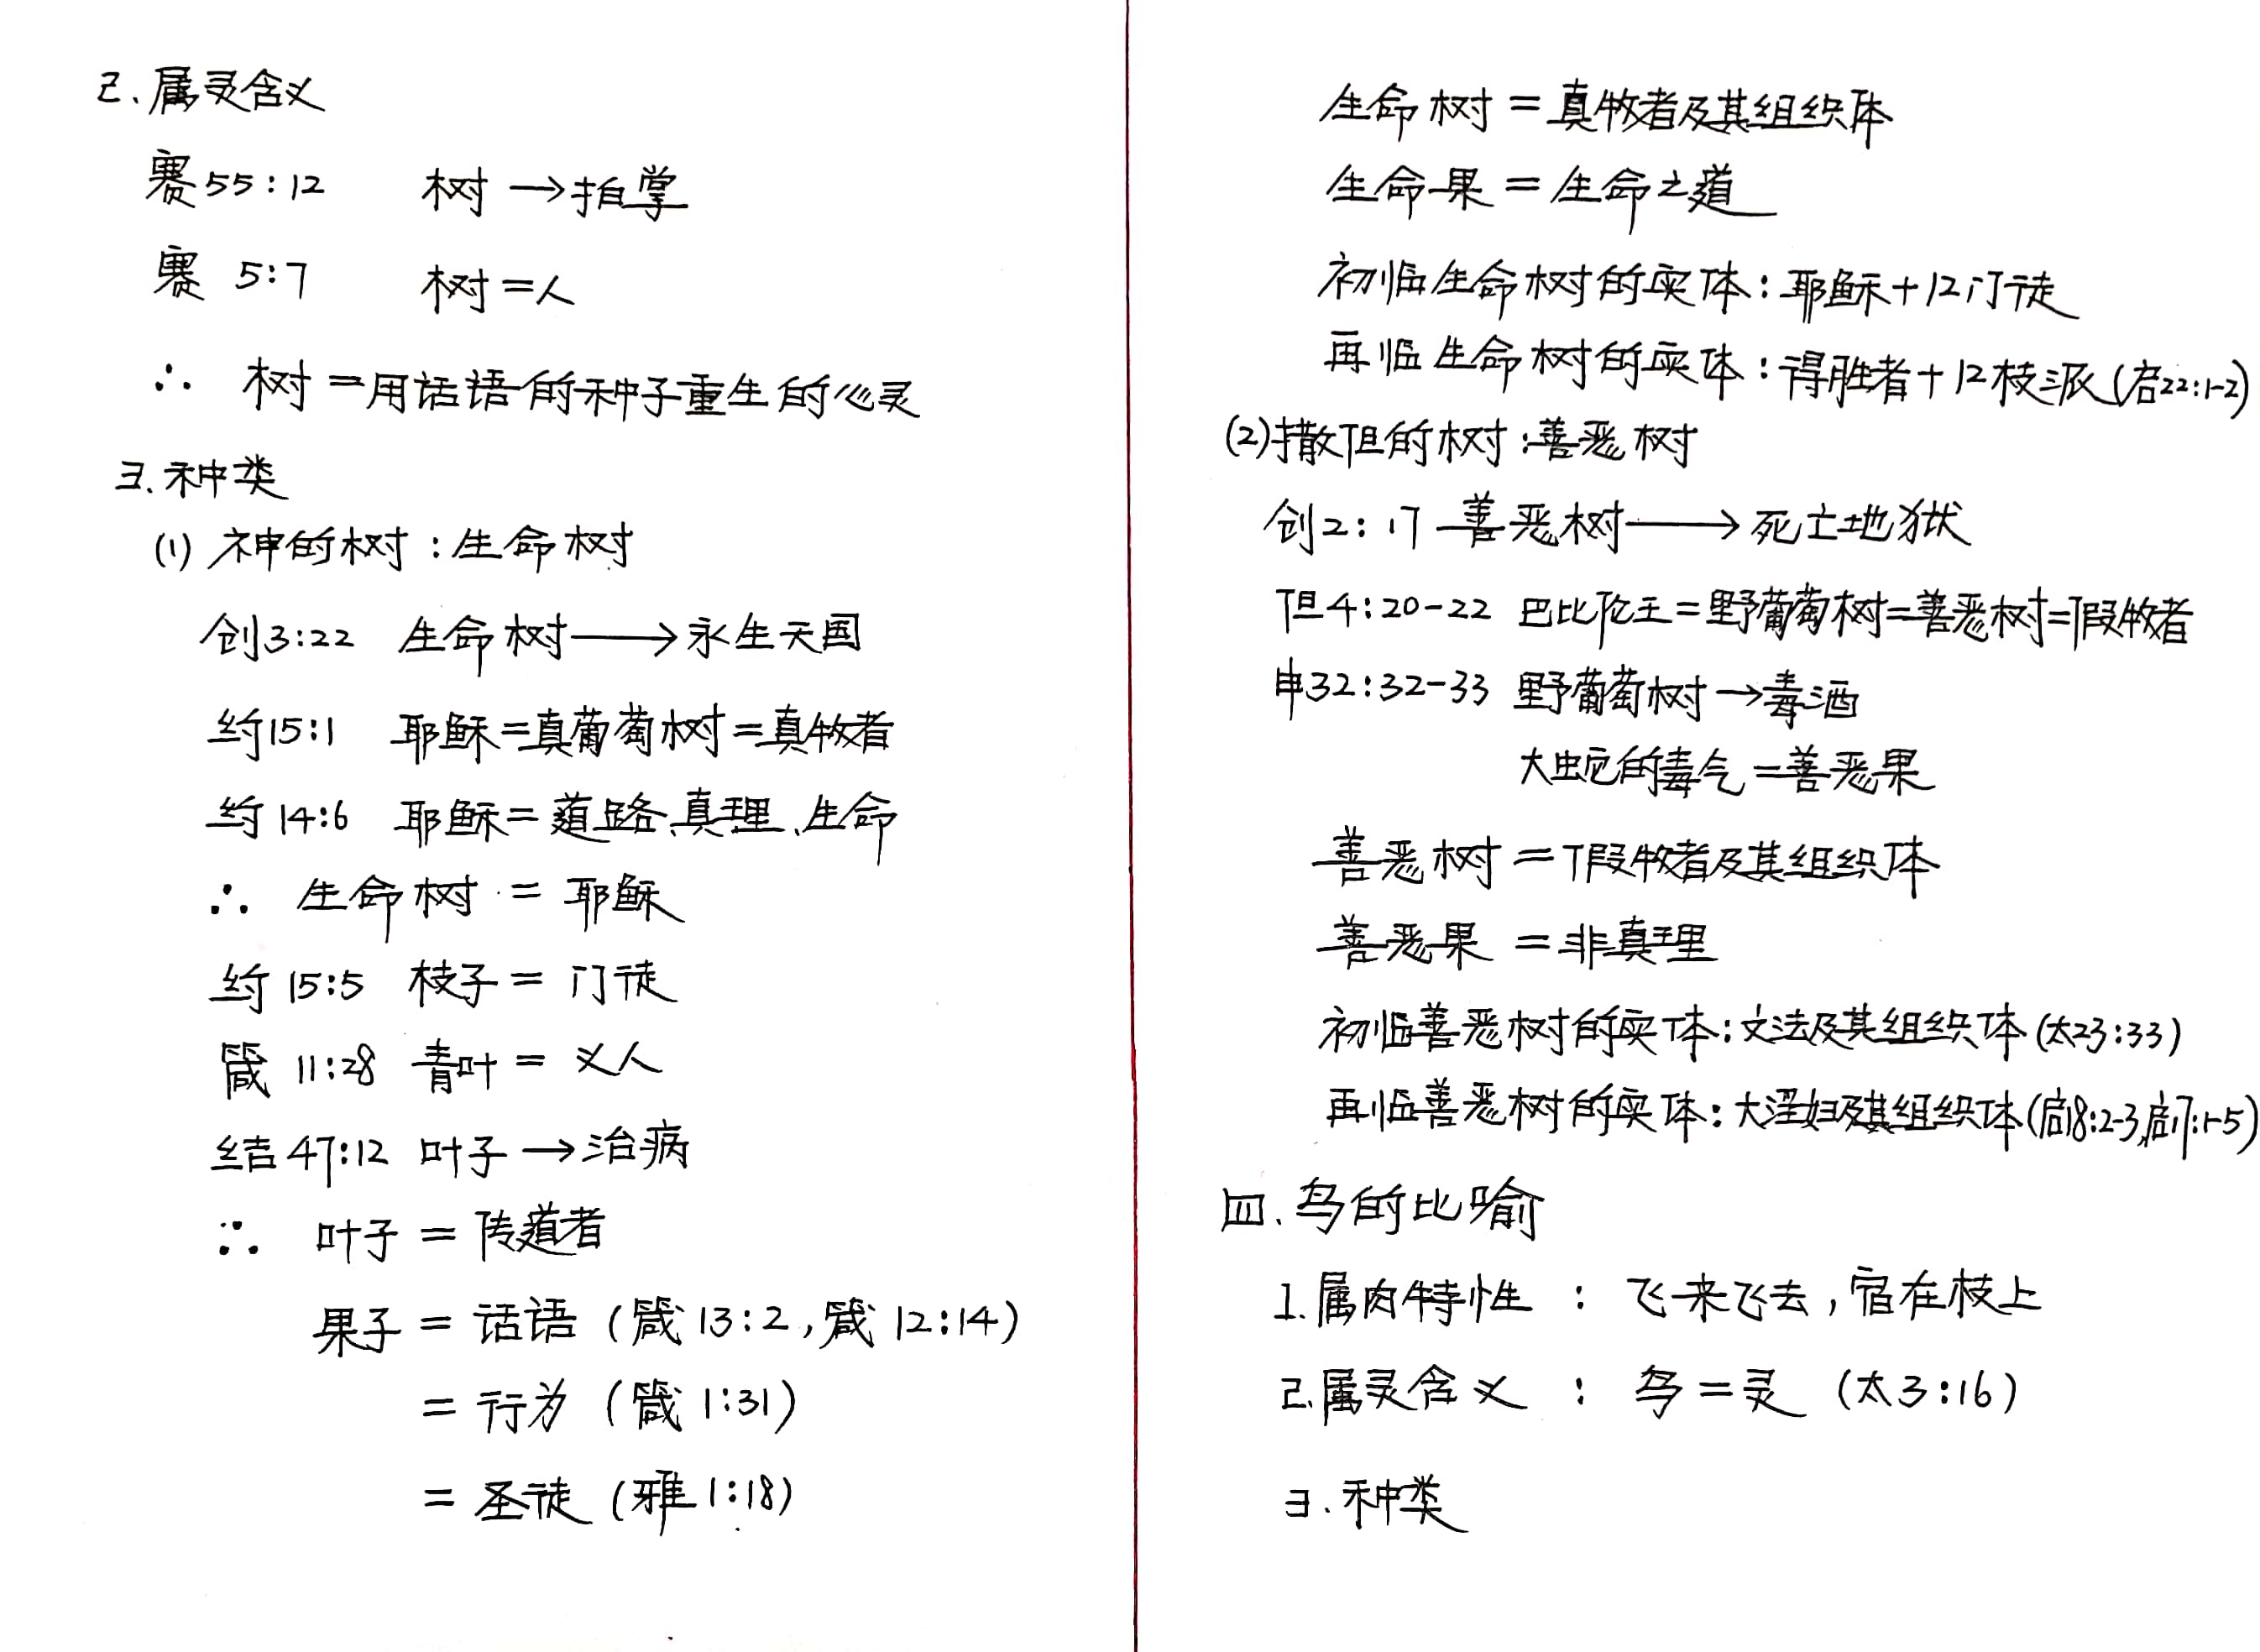 2、属灵含义
赛55:12 树→拍掌
赛 5:7 树=人
∴ 树=用话语的种子重生的心灵
3.种类
(1) 神的树:生命树
创3:22 生命树→永生天国
约15:1 耶稣=真葡萄树=真牧者
约14:6 耶稣=道路、真理、生命
∴ 生命树=耶稣
约15:5 枝子=门徒
箴 11:28 青叶=义人
结47:12 叶子→治病
∴ 叶子=传道者
果子=话语(箴13:2,箴12:14)
=行为(箴1:31)
=圣徒(雅1:18)
生命树=真牧者及其组织体
生命果=生命之道
初临生命树的实体:耶稣+12门徒
再临生命树的实体:得胜者+12枝派(启22:1-2)
(2)撒但的树:善恶树
创2:17 善恶树→死亡地狱
但4:20-22 巴比伦王=野葡萄树=善恶树=假牧者
申32:32-33 野葡萄树→毒酒
大蛇的毒气=善恶果
善恶树=假牧者及其组织体
善恶果=非真理
初临善恶树的实体:文法及其组织体(太23:33)
再临善恶树的实体:大淫妇及其组织体(启18:2-3,启17:1-5)
四、鸟的比喻
1.属肉特性:飞来飞去,宿在枝上
2.属灵含义:鸟=灵(太3:16)
3.种类